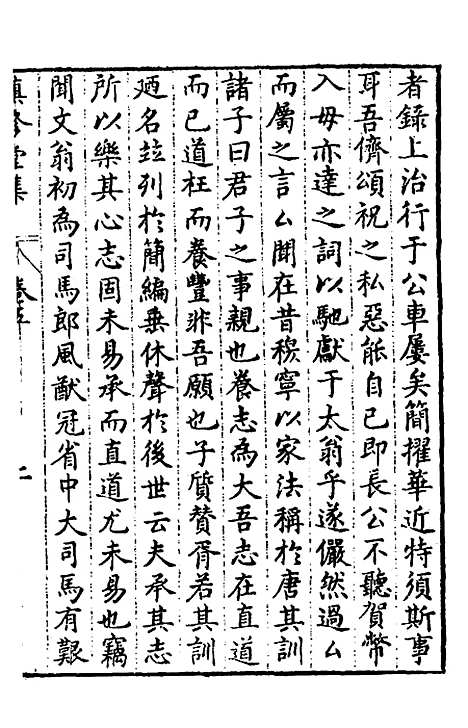 者錄上治行于公車屢矣簡擢華近特須斯事
耳吾儕頌祝之私惡能自已即長公不聽賀幣
入毋亦達之詞以馳獻于太翁乎遂儼然過厶
而屬之言厶聞在昔穆寧以家法稱於唐其訓
諸子曰君子之事親也養志為大吾志在直道
而已道枉而養豐非吾願也子質贊胥若其訓
廼名竝列於簡編垂休聲於後世云夫承其志
所以樂其心志固未易承而直道尤未易也竊
聞文翁初為司馬郎風猷冠省中大司馬有艱
堂集
卷五
二